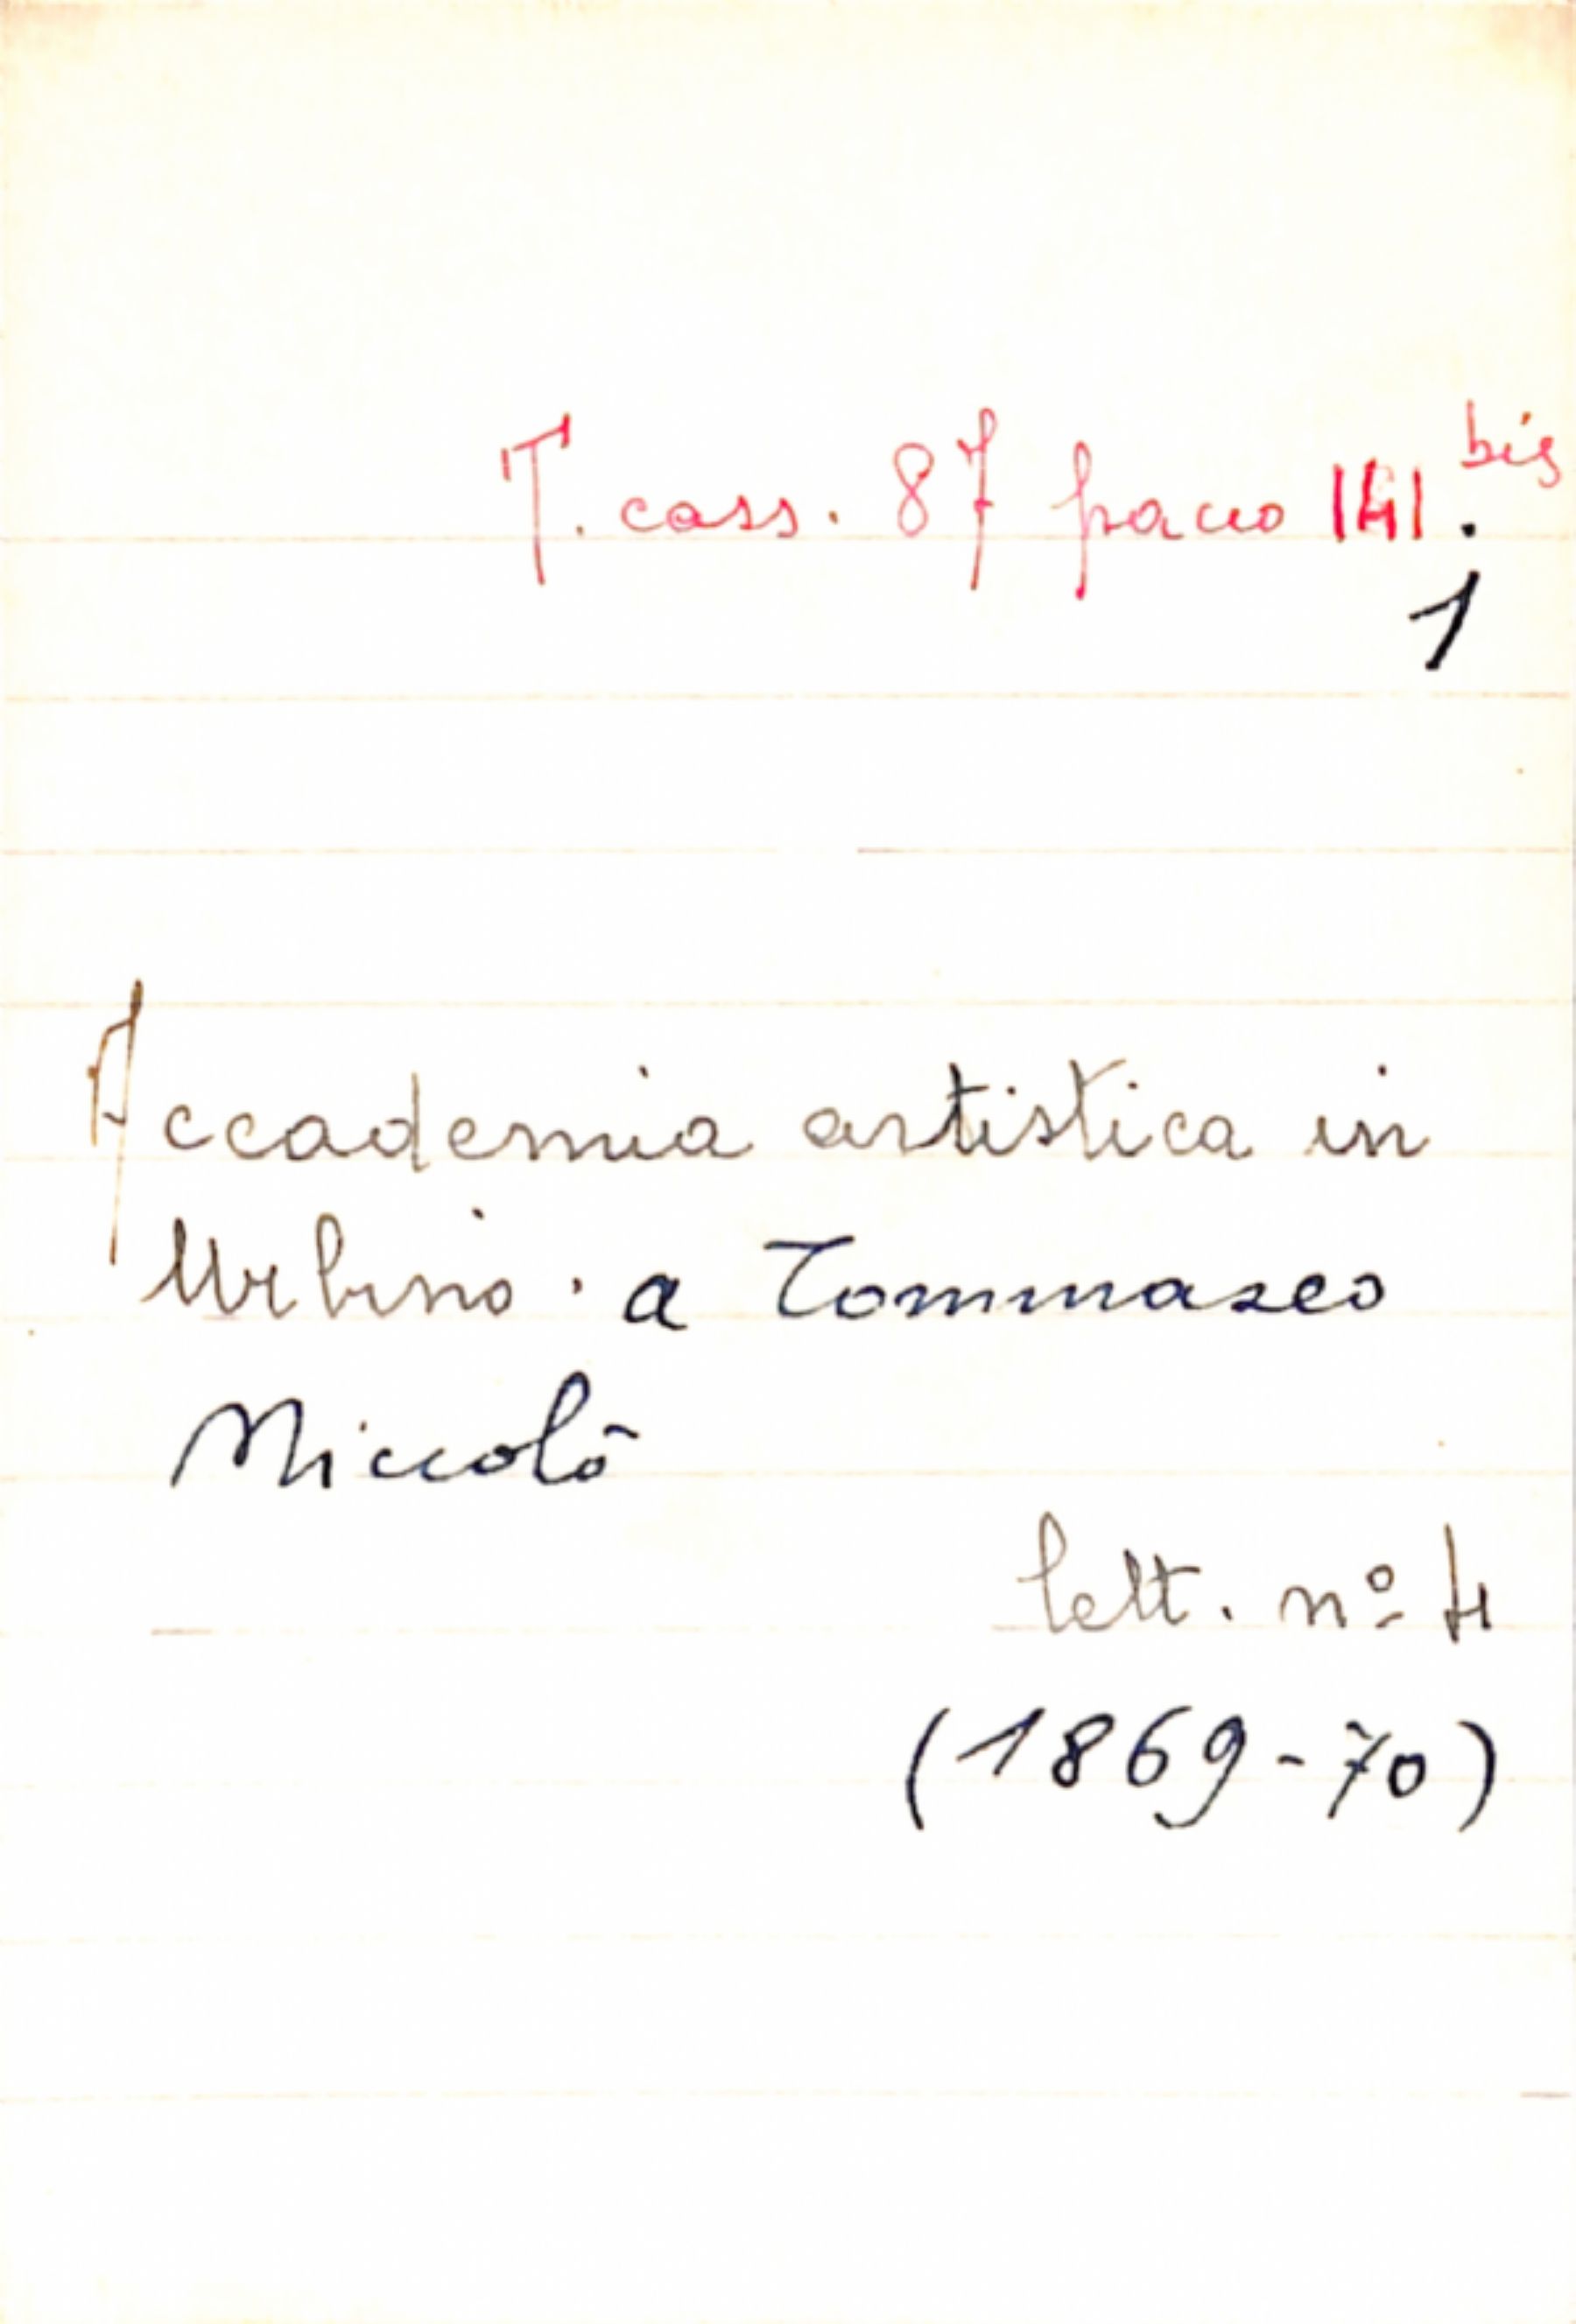 T. cass. 87 pacco 141.bis
1
Accademia artistica in
Urbino. a Tommaseo
Niccolò
lett. nº 4
(1869-70)